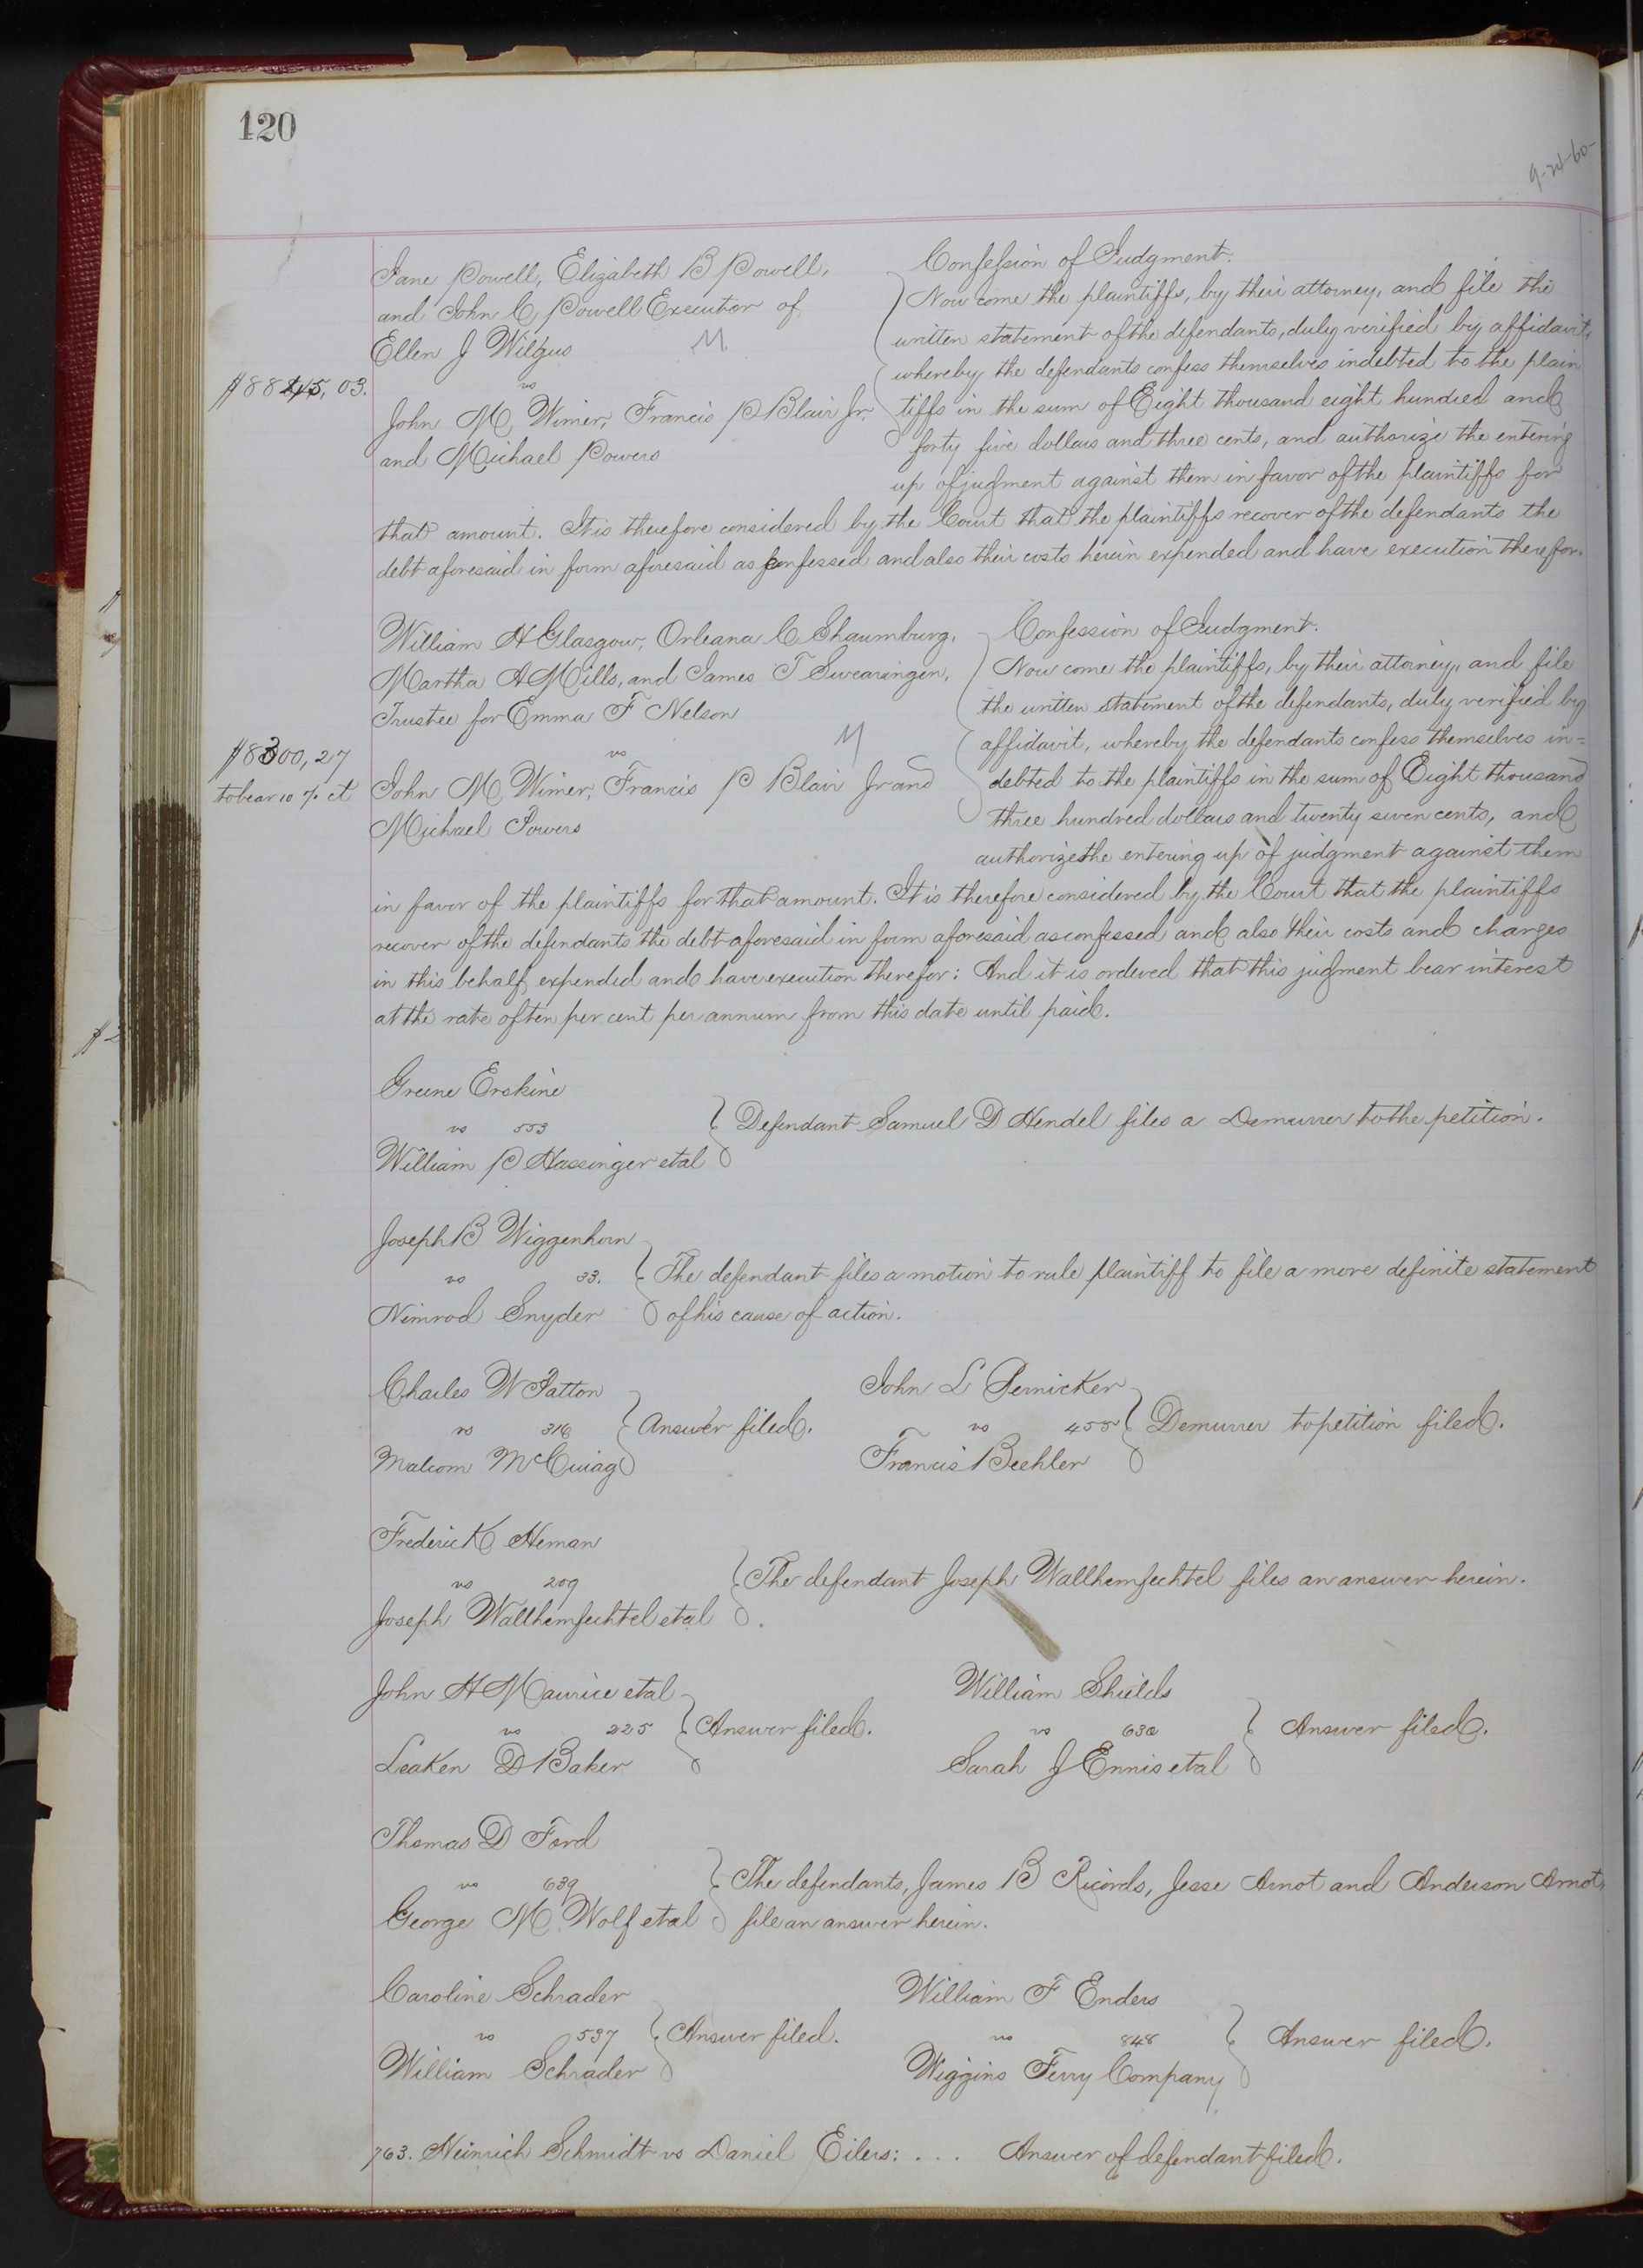 120
9-24-60-
Jane Powell, Elizabeth B Powell,
and John C Powell Executor of
Ellen J Wilgus M.
vs
$8845,03.
John M Wimer, Francis P Blair Jr.
and Michael Powers
Confession of Judgment.
Now come the plaintiffs, by their attorney, and file the
written statement of the defendants, duly verified by affidavit,
whereby the defendants confess themselves indebted to the plain
tiffs in the sum of Eight thousand eight hundred and
forty five dollars and three cents, and authorize the entering
up of judgment against them in favor of the plaintiffs for
that amount. It is therefore considered by the Court that the plaintiffs recover of the defendants the
debt aforesaid in form aforesaid as confessed and also their costs herein expended and have execution therefor.
William H Glasgow, Orleana C Shaumburg,
Martha A Mills, and James T Swearingen,
Trustee for Emma F Nelson
vs M
$8300,27
to bear 10 % ct
John M Wimer, Francis P Blair Jr and
Michael Powers
Confession of Judgment.
Now come the plaintiffs, by their attorney, and file
the written statement of the defendants, duly verified by
affidavit, whereby the defendants confess themselves in=
debted to the plaintiffs in the sum of Eight thousand
three hundred dollars and twenty seven cents, and
authorize the entering up of judgment against them
in favor of the plaintiffs for that amount. It is therefore considered by the Court that the plaintiffs
recover of the defendants the debt aforesaid in form aforesaid as confessed and also their costs and charges
in this behalf expended and have execution therefor: And it is ordered that this judgment bear interest
at the rate of ten per cent per annum from this date until paid.
Greene Erskine
vs 553
William P Hassinger et al
Defendant Samuel D Hendel files a Demurrer to the petition.
Joseph B Wiggenhorn
vs 33.
Nimrod Snyder
The defendant files a motion to rule plaintiff to file a more definite statement
of his cause of action.
Charles W Patton
vs 316
Malcom McCuiag
Answer filed.
John L Pernicker
vs 455
Francis Beehler
Demurrer to petition filed.
Frederick Heman
vs 209
Joseph Wallhemfechtel et al
The defendant Joseph Wallhemfechtel files an answer herein.
John H Maurice et al
vs 225
Leaken D Baker
Answer filed.
William Shields
vs 630
Sarah J Ennis et al
Answer filed.
Thomas D Ford
vs 639
George M Wolf et al
The defendants, James B Ricords, Jesse Arnot and Anderson Arnot,
file an answer herein.
Caroline Schrader
vs 537
William Schrader
Answer filed.
William F Enders
vs 848
Wiggins Ferry Company
Answer filed.
763. Heinrich Schmidt vs Daniel Eilers: . . . Answer of defendant filed.